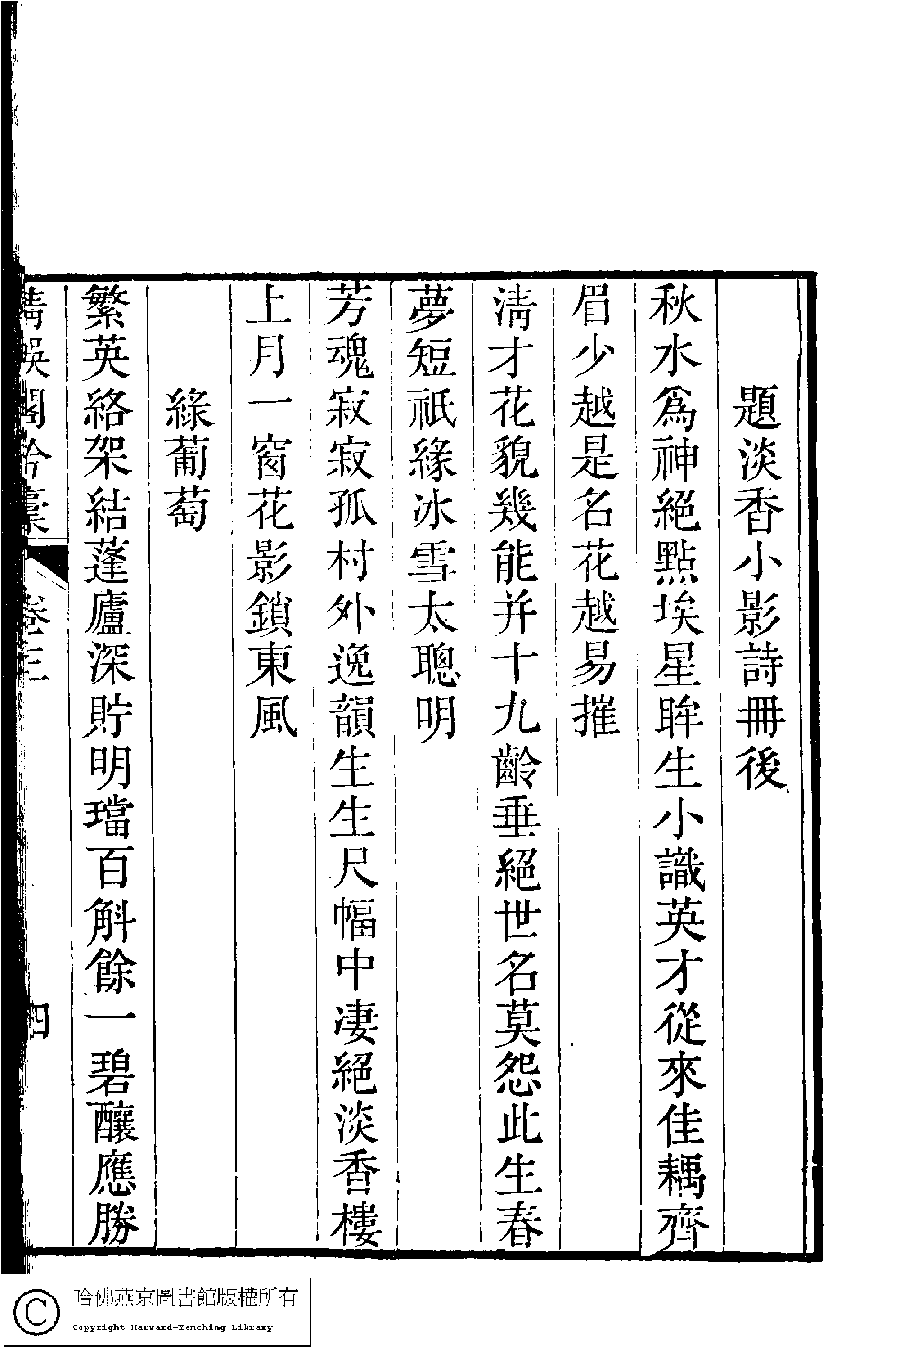 題淡香小影詩冊後
秋水為神絕點埃星眸生小識英才從來佳耦齊
眉少越是名花越易摧
清才花貌幾能并十九齡垂絕世名莫怨此生春
夢短祇緣冰雪太聰明
芳魂寂寂孤村外逸韻生生尺幅中凄絕淡香樓
上月一窗花影鎖東風
綠葡萄
繁英絡架結蓬廬深貯明璫百斛餘一碧釀應勝
清娛閣吟稾
卷三
四
哈佛燕京圖書館版權所有
Copyright Harvard-Yenching Library